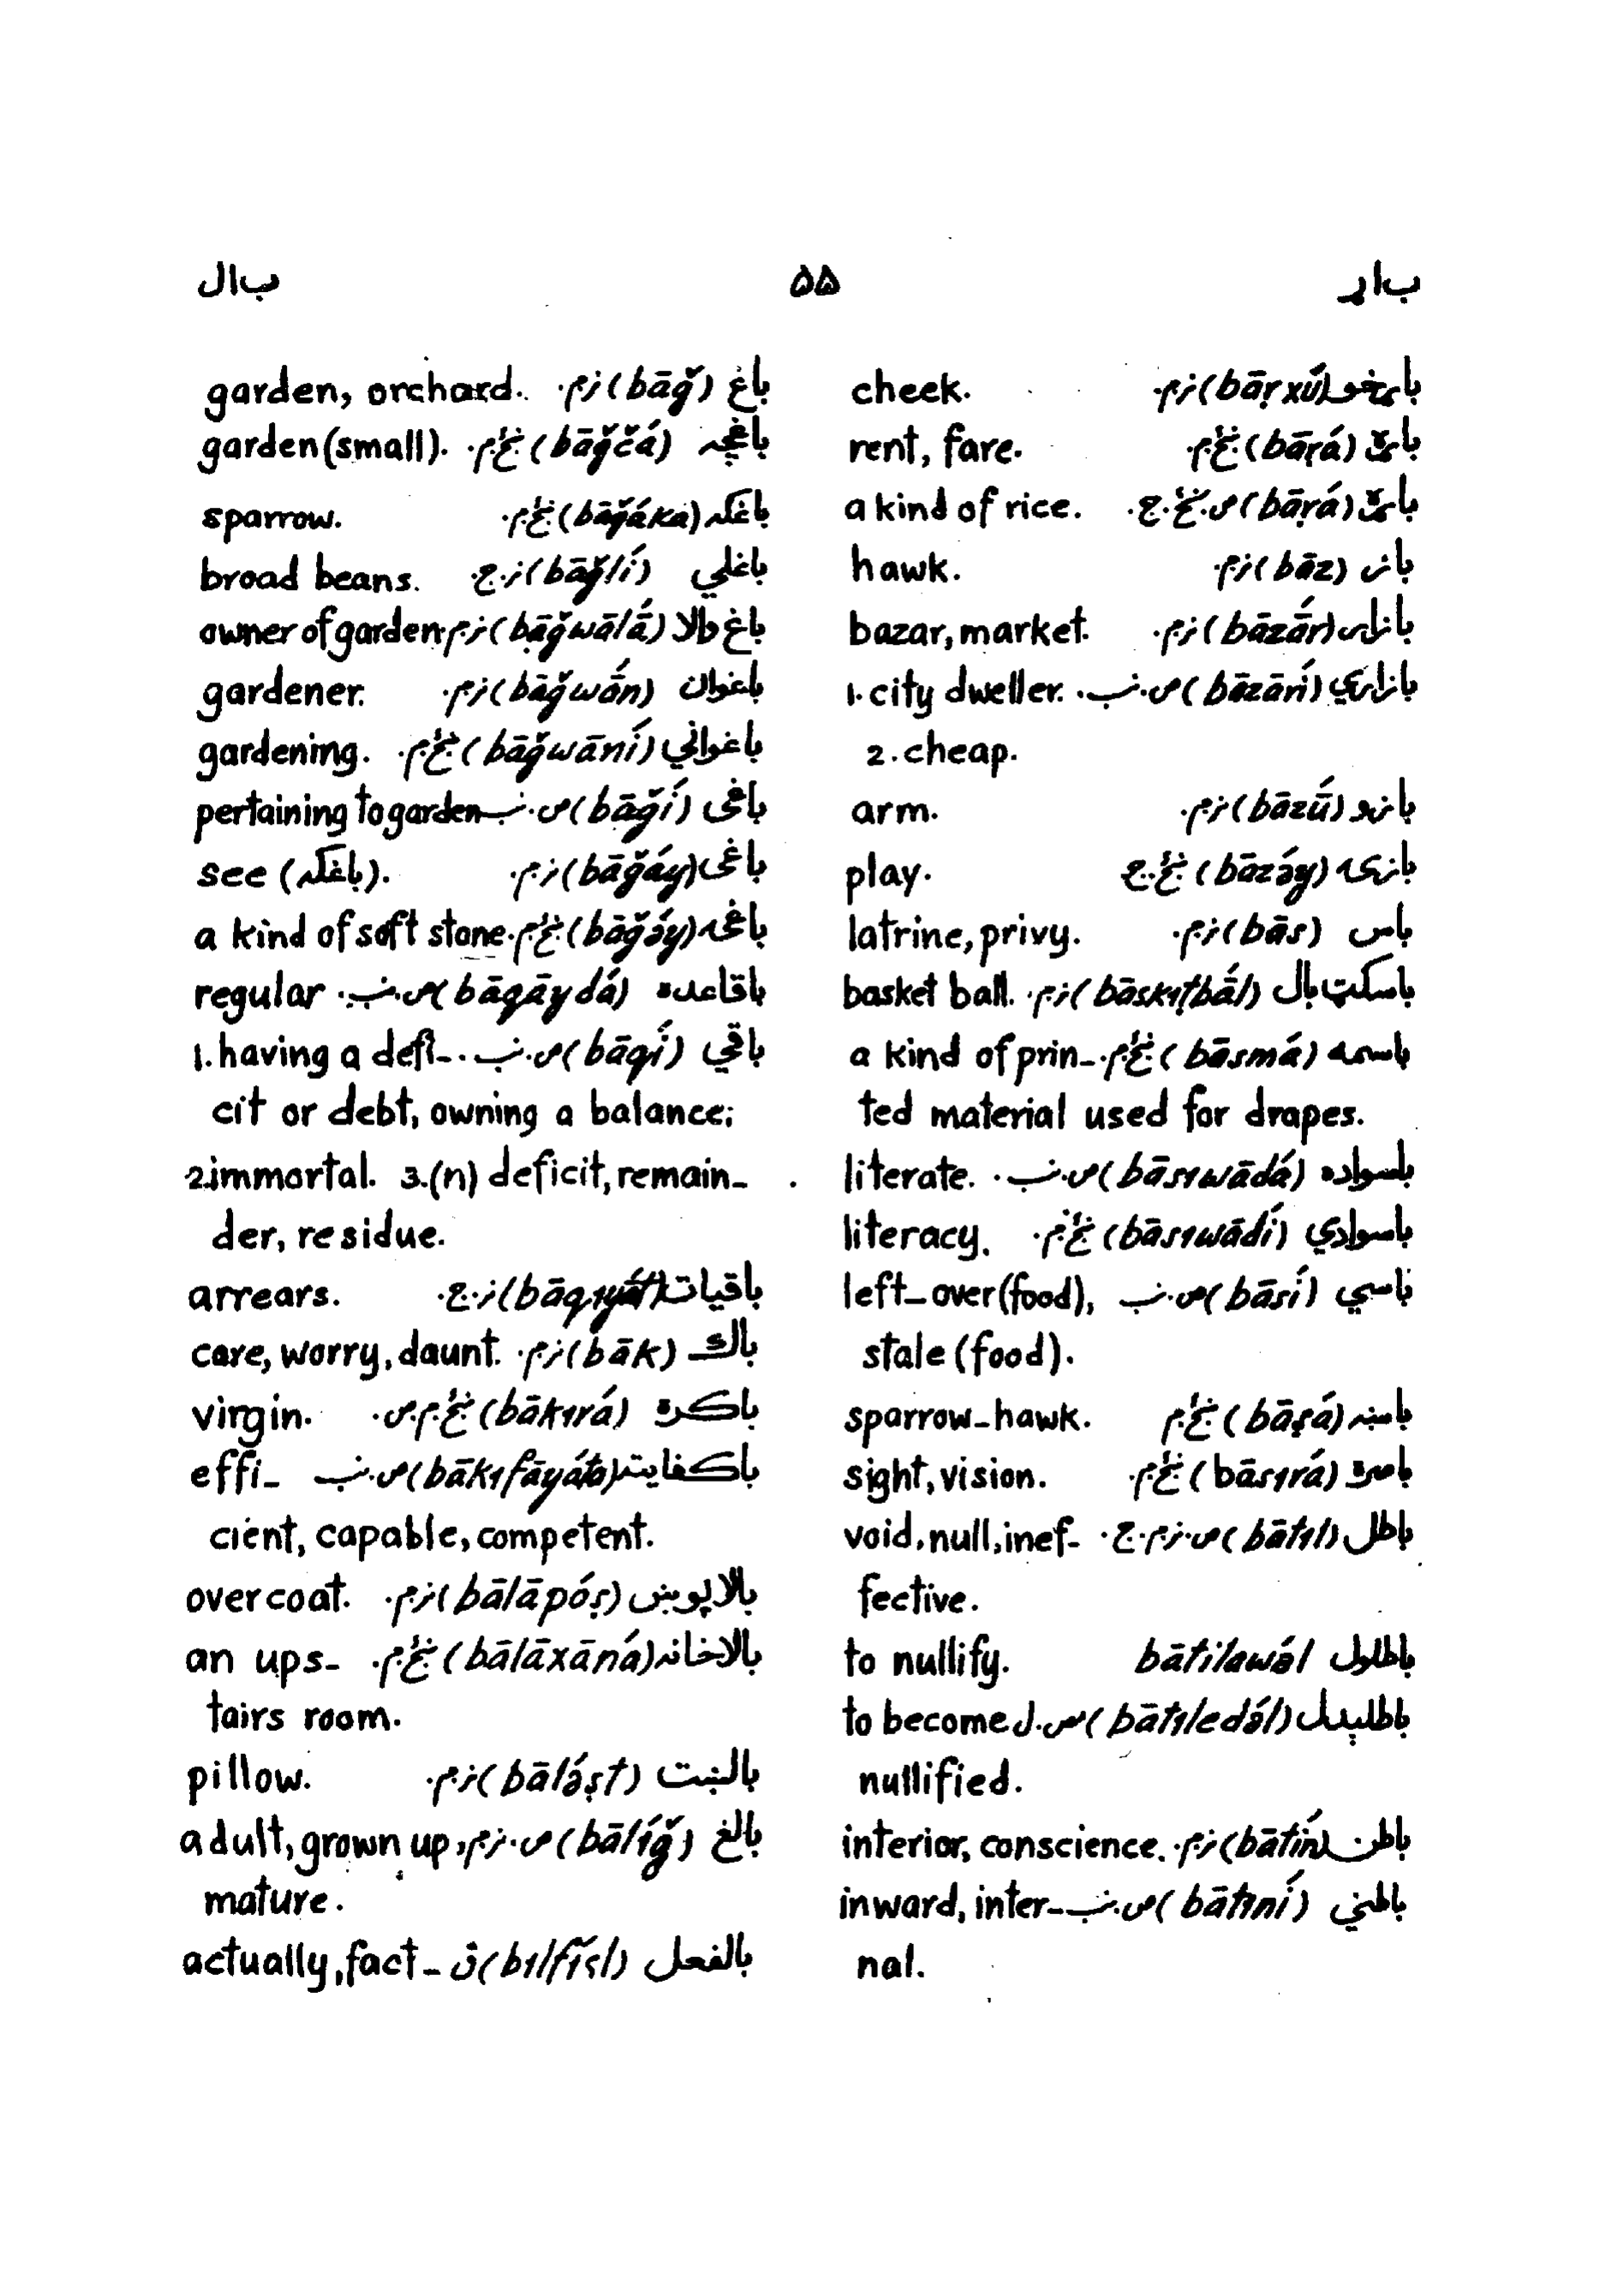 باړ ۵۵ بال
باړخو (bāṛxú) نر.م. cheek.
باړه (bāṛá) ښځ.م. rent, fare.
باړه (bāṛá) ص.ښځ.ج. a kind of rice.
باز (bāz) نر.م. hawk.
بازار (bāzā́r) نر.م. bazar, market.
بازاري (bāzārí) ص.نب. 1. city dweller.
2. cheap.
بازو (bāzū́) نر.م. arm.
بازۍ (bāzə́y) ښځ.ج play.
باس (bās) نر.م. latrine, privy.
باسکټ بال (bāskıṭbā́l) نر.م. basket ball.
باسمه (bāsmá) ښځ.م. a kind of prin-
ted material used for drapes.
باسواده (bāsıwādá) ص.نب. literate.
باسوادي (bāsıwādí) ښځ.م. literacy.
باسي (bāsí) ص.نب left-over (food),
stale (food).
باښه (bāṣ̌á) ښځ.م sparrow-hawk.
باصره (bāsırá) ښځ.م. sight, vision.
باطل (bātıl) ص.نر.م.ج. void, null, inef-
fective.
باطلول bātilawə́l to nullify.
باطلېدل (bātıledə́l) ص.ل to become
nullified.
باطن (bātín) نر.م. interior, conscience.
باطني (bātıní) ص.نب inward, inter-
nal.
باغ (bāğ) نر.م. garden, orchard.
باغچه (bāğčá) ښځ.م. garden (small).
باغکه (bāğáka) ښځ.م. sparrow.
باغلي (bāğlí) نر.ج. broad beans.
باغ والا (bāğwālā́) نر.م. owner of garden
باغوان (bāğwā́n) نر.م. gardener.
باغواني (bāğwāní) ښځ.م. gardening.
باغي (bāğí) ص.نب pertaining to garden
باغی (bāğáy) نر.م. see (باغکه).
باغۍ (bāğə́y) ښځ.م. a kind of soft stone.
باقاعده (bāqāydá) ص.نب. regular
باقي (bāqí) ص.نب. 1. having a defi-
cit or debt, owning a balance;
2. immortal. 3. (n) deficit, remain-
der, residue.
باقيات (bāqıyā́t) نر.ج. arrears.
باک (bāk) نر.م. care, worry, daunt.
باکره (bākırá) ښځ.م.ص. virgin.
باکفايته (bākıfāyáta) ص.نب effi-
cient, capable, competent.
بالاپوښ (bālāpóṣ̌) نر.م. overcoat.
بالاخانه (bālāxāná) ښځ.م. an ups-
tairs room.
بالښت (bālə́ṣ̌t) نر.م. pillow.
بالغ (bālíğ) ص.نر.م. adult, grown up,
mature.
بالفعل (bılfı́ʿl) ق actually, fact-